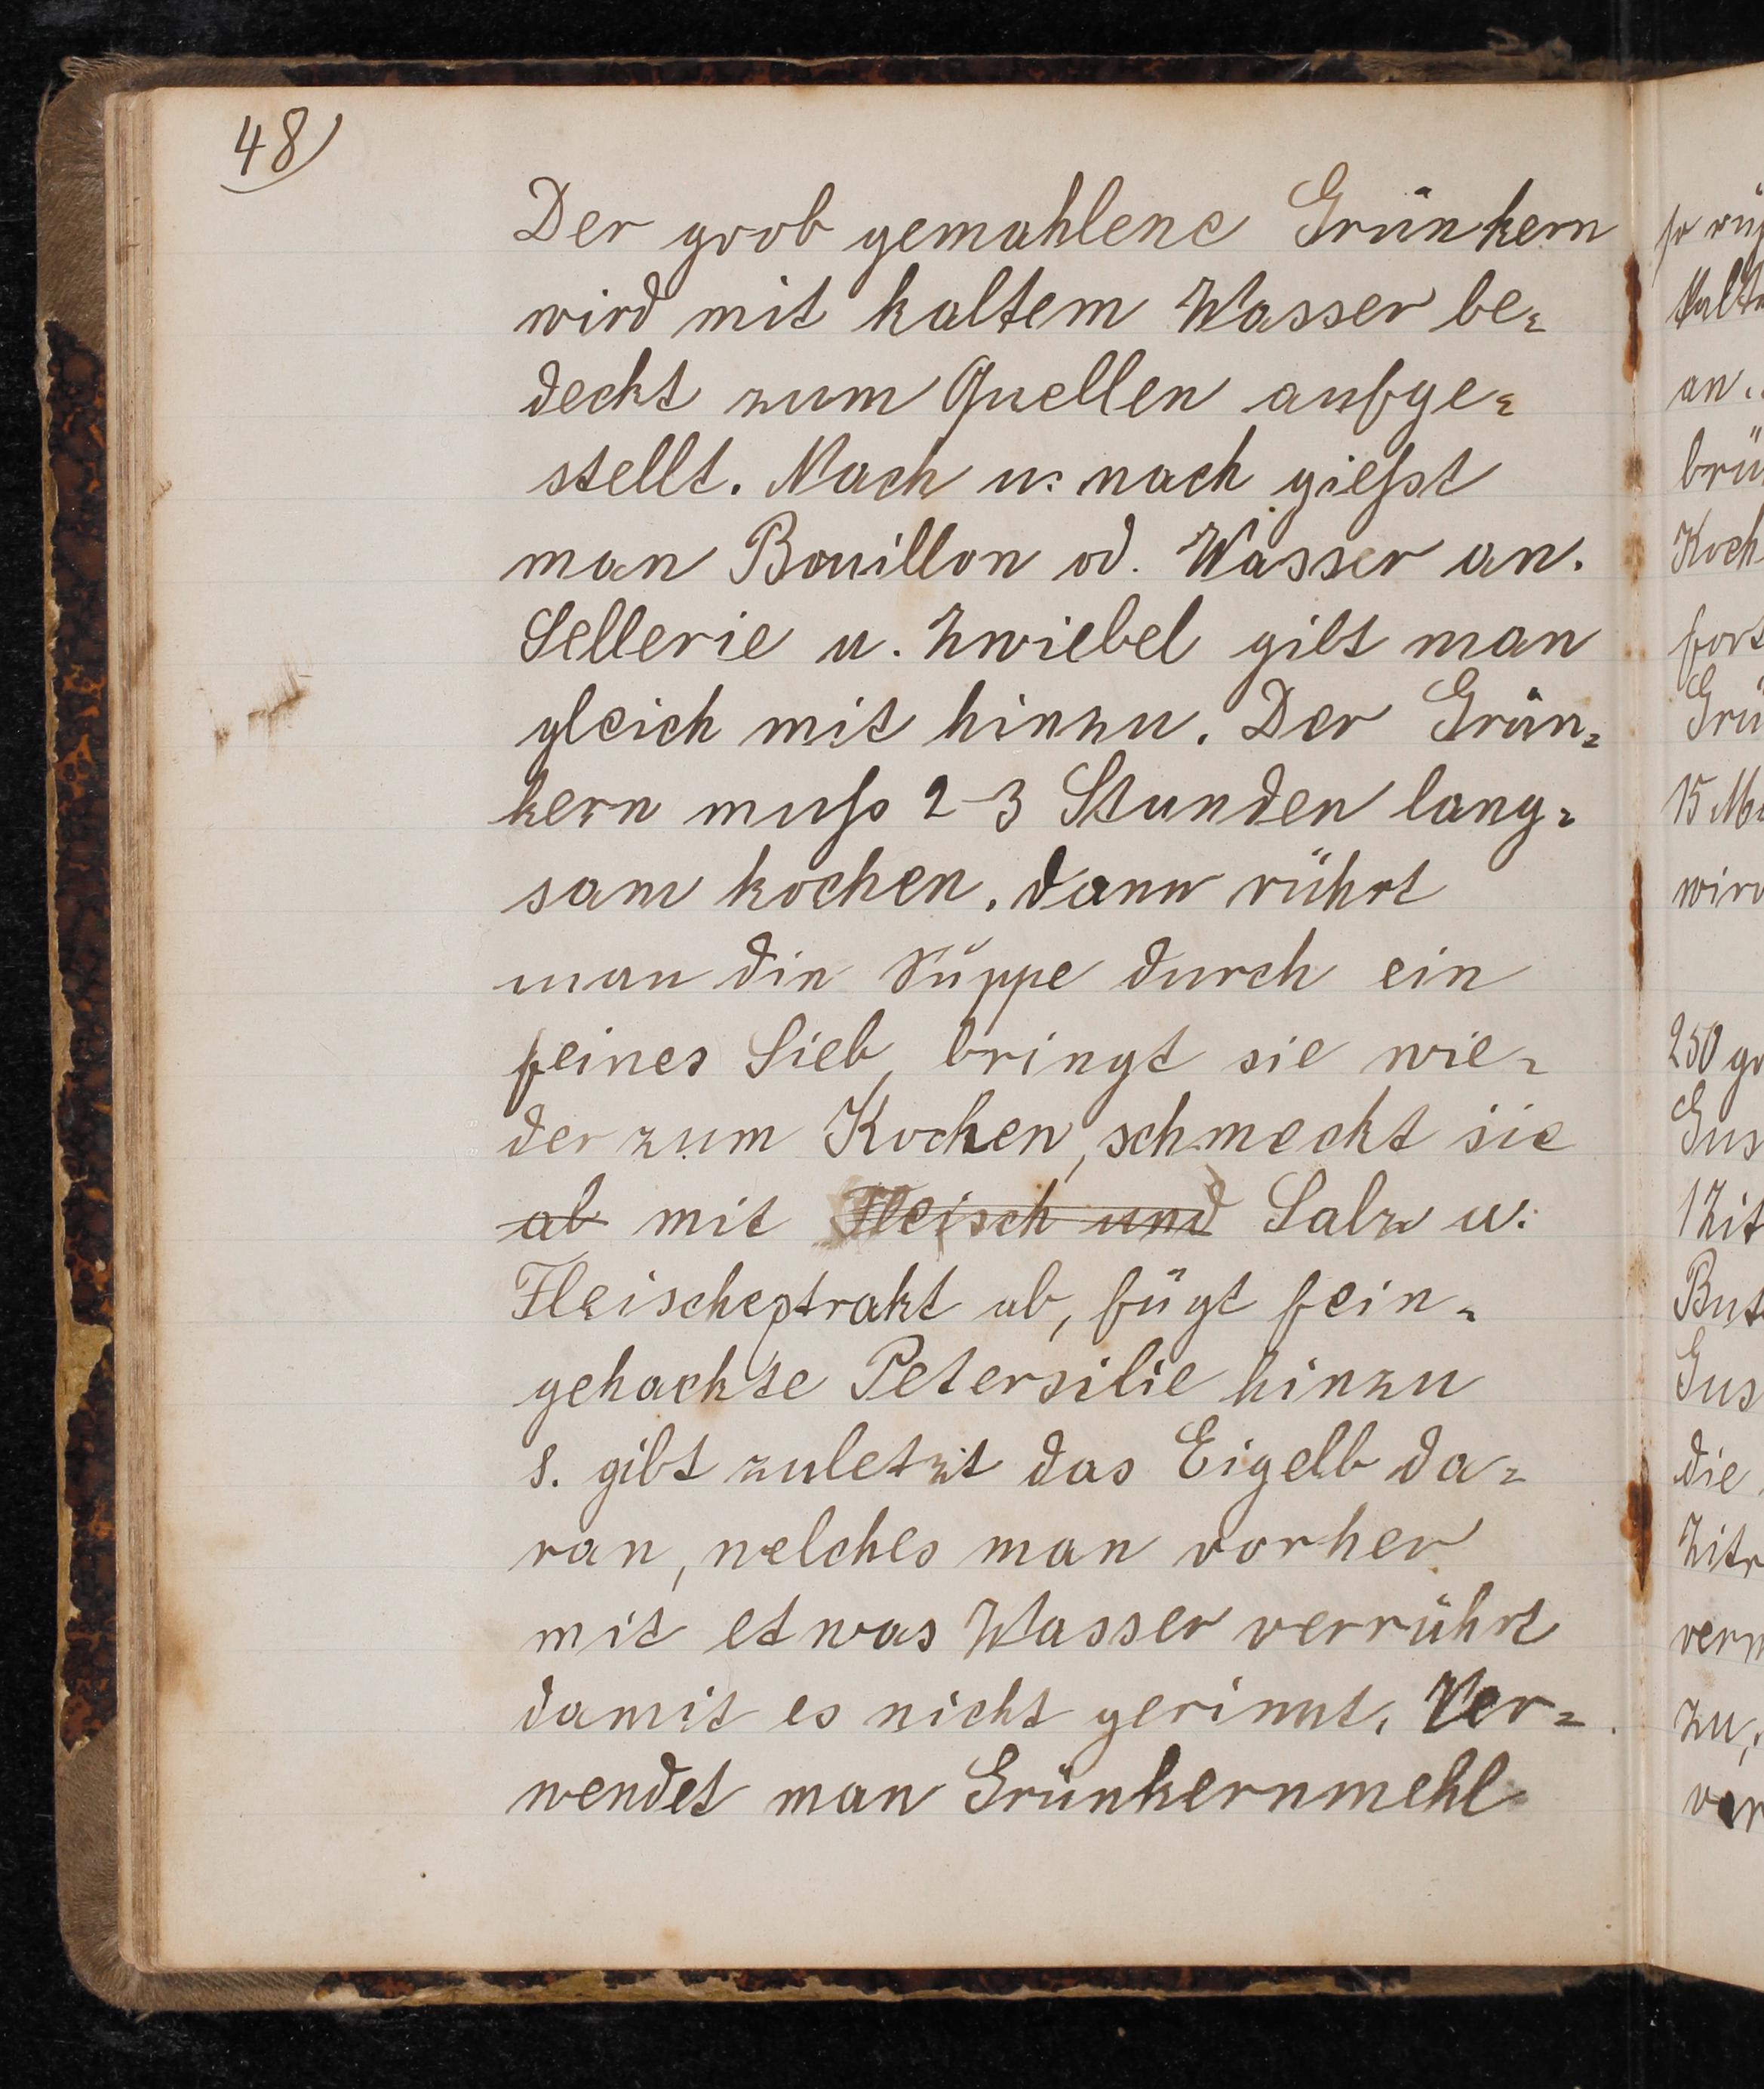 48
Der grob gemahlene Grünkern
wird mit kaltem Wasser be-
deckt zum Quellen aufge-
stellt. Nach u. nach giesst
man Bouillon od. Wasser an.
Sellerie u. Zwiebel gibt man
gleich mit hinzu. Der Grün-
kern muss 2-3 Stunden lang-
sam kochen. dann rührt
man die Suppe durch ein
feines Sieb, bringt sie wie-
der zum Kochen, schmeckt sie
ab mit Fleisch und Salz u.
Fleischextrakt ab, fügt fein-
gehackte Petersilie hinzu
s. gibt zuletzt das Eigelb da-
ran, welches man vorher
mit etwas Wasser verrührt
damit es nicht gerinnt. Ver-
wendet man Grünkernmehl
an
brü
Koch
fort
Grü
15 Mi
wird
250 gr
Gus
1 Zit
But
Gus
die
Zitr
zu,